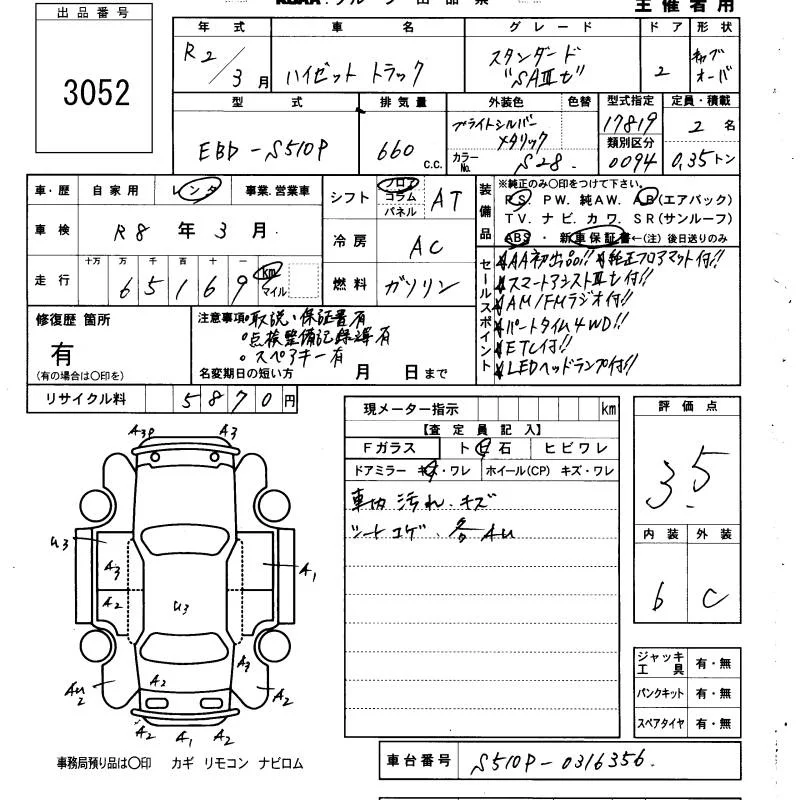 KCAA.グループ 出品票
主催者用
出品番号
3052
年式 車名 グレード ドア 形状
R2/3月 ハイゼット トラック スタンダード "SAⅢt" 2 キャブオーバ
型式 排気量 外装色 色替 型式指定 定員・積載
EBD-S510P 660 c.c. ブライトシルバー メタリック 17819 2名
カラーNo. S28. 類別区分 0094 0,35トン
車・歴 自家用 レンタ 事業.営業車
車検 R8年 3月
走行 十万 万 千 百 十 一 km マイル
6 5 1 6 9
シフト フロア コラム パネル AT
冷房 AC
燃料 ガソリン
装備品
※純正のみ〇印をつけて下さい。
PS. PW. 純AW. AB(エアバック)
TV. ナビ. カワ. SR(サンルーフ)
ABS ・ 新車保証書←(注) 後日送りのみ
セールスポイント
AA初出品!! 純正フロアマット付!!
スマートアシストⅢt付!!
AM/FMラジオ付!!
パートタイム4WD!!
ETC付!!
LEDヘッドランプ付!!
修復歴 箇所
有
(有の場合は〇印を)
注意事項
・取説・保証書有
・点検整備記録簿有
・スペアキー有
名変期日の短い方 月 日まで
リサイクル料 5870円
現メーター指示 km
【査定員記入】
Fガラス ト石 ヒビワレ
ドアミラー キズ・ワレ ホイール(CP) キズ・ワレ
車内 汚れ・キズ
シートコゲ. 各AU
評価点
3.5
内装 外装
6 C
A3P A3
U3 A3 A1
A2 U3
A3
AU2 A2 A2
A2 A1 A2
ジャッキ工具 有・無
パンクキット 有・無
スペアタイヤ 有・無
事務局預り品は〇印 カギ リモコン ナビロム
車台番号 S510P-0316356.